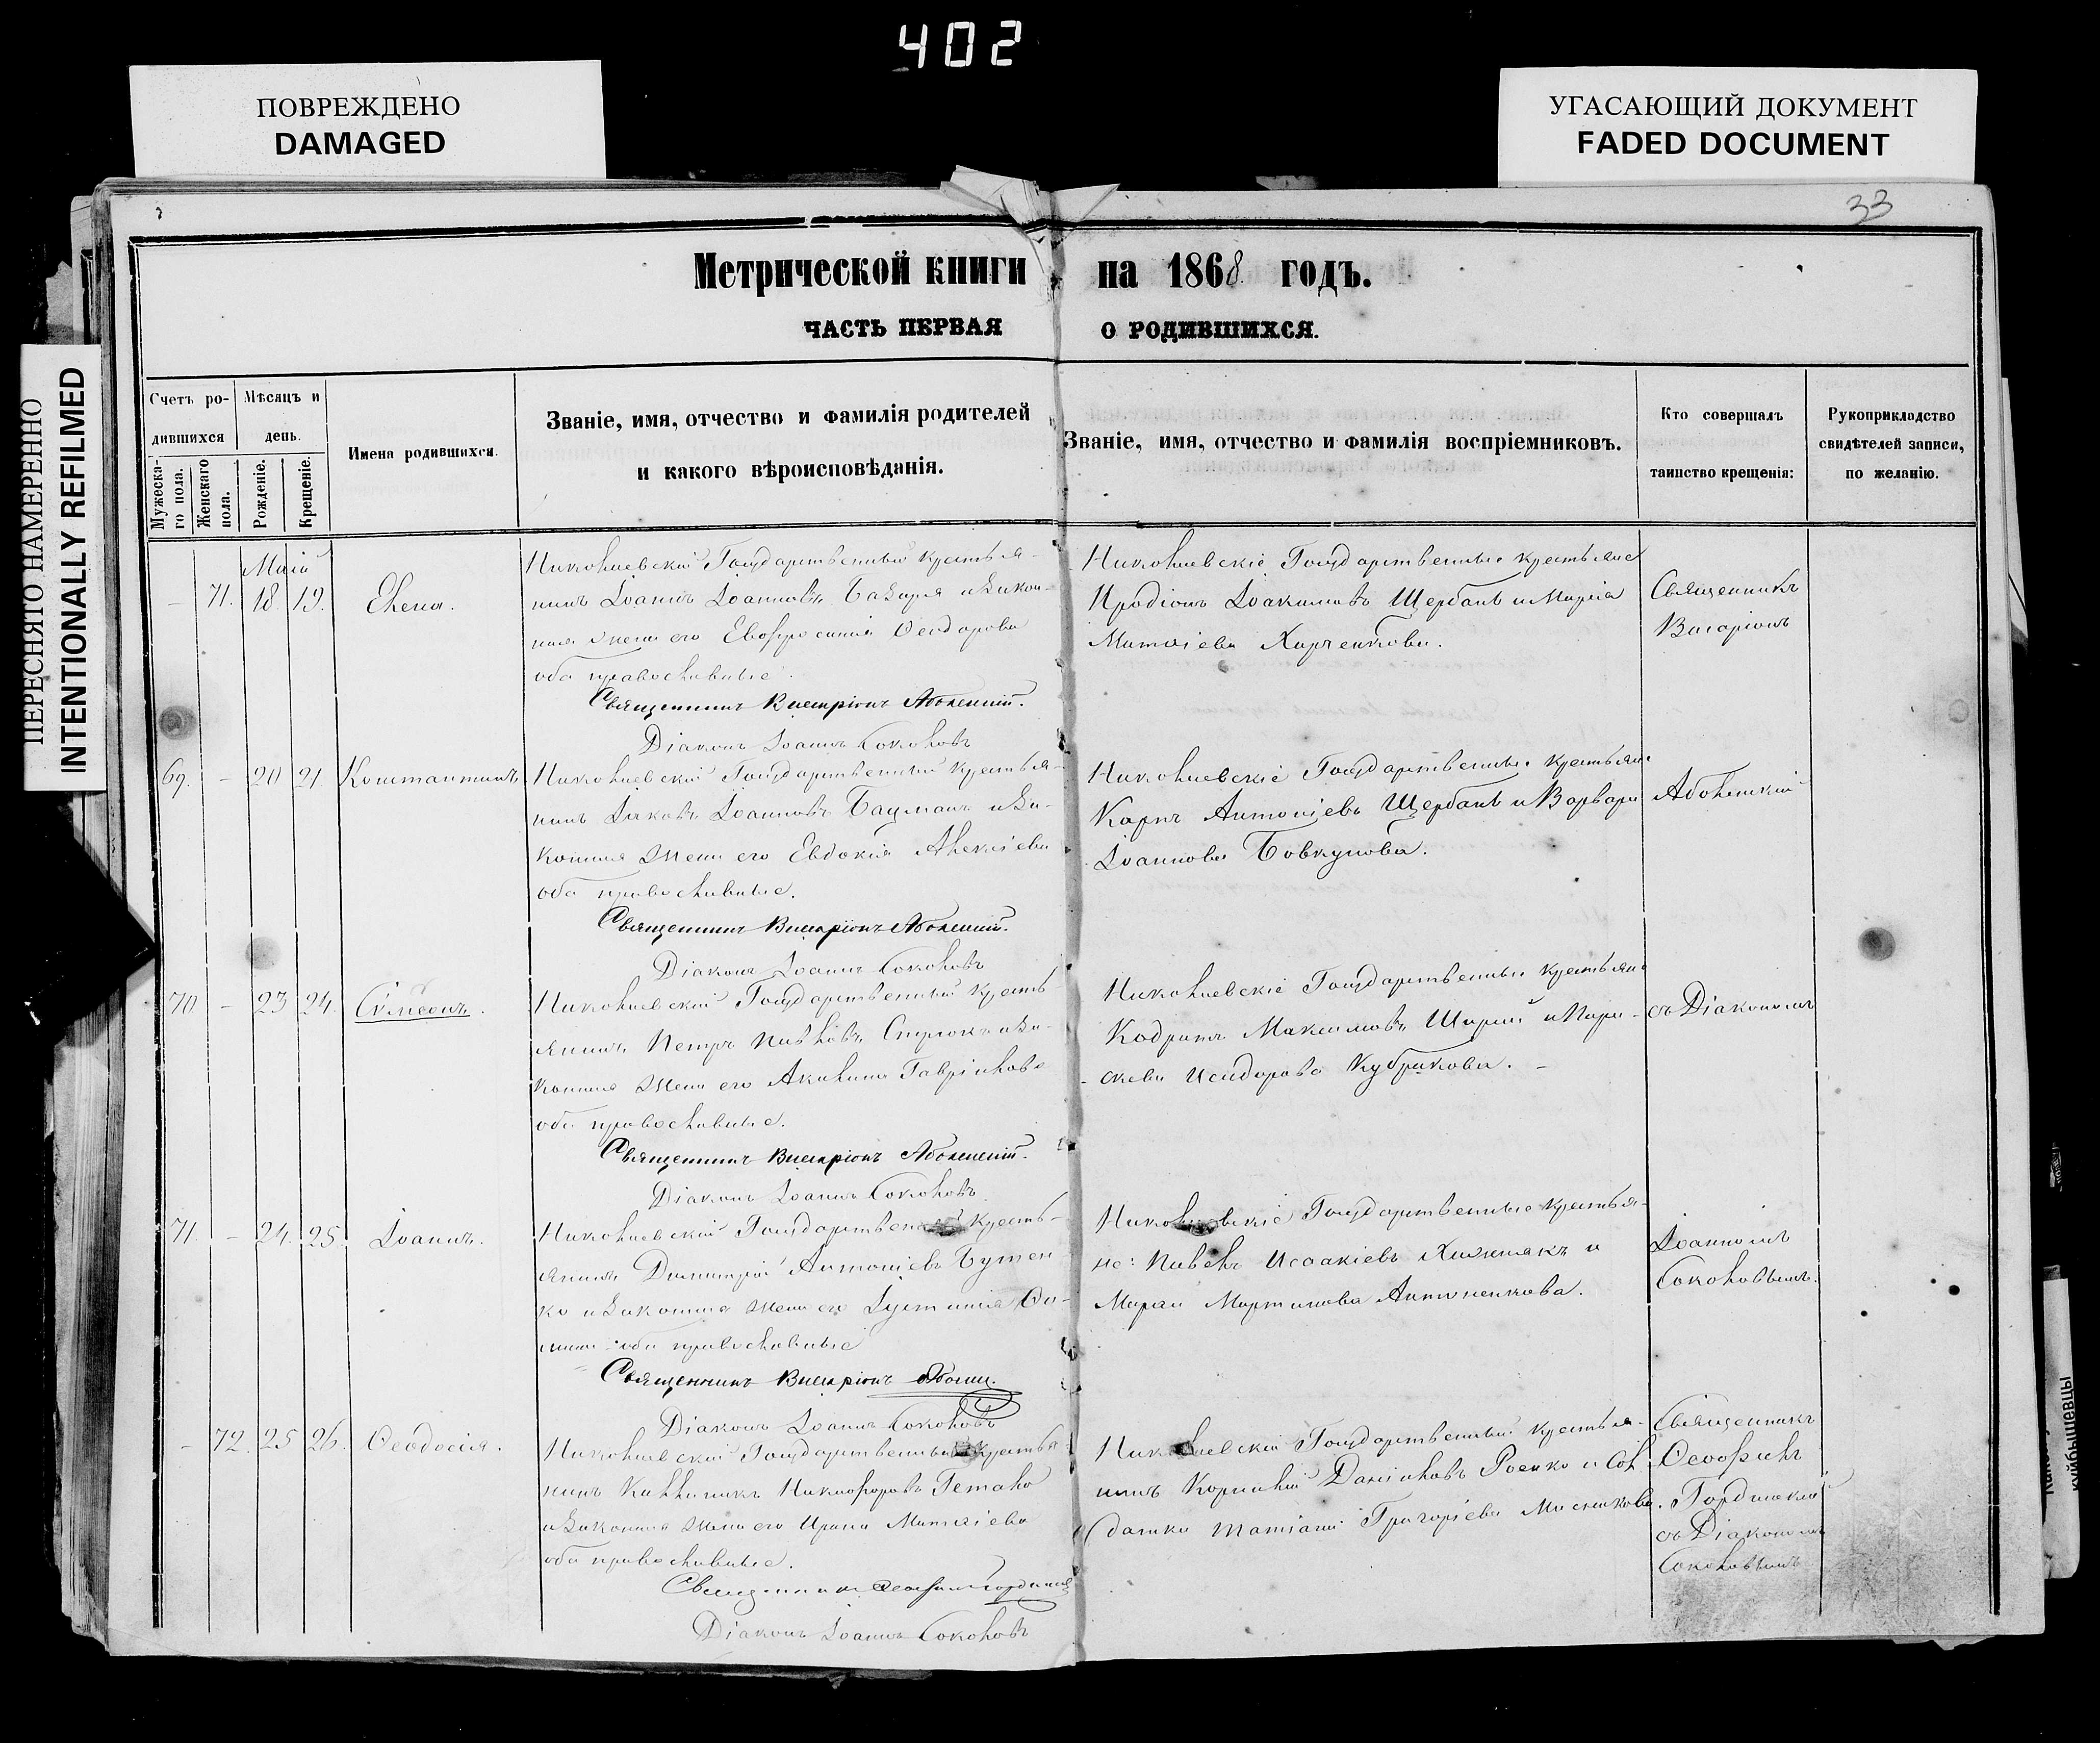 402
ПОВРЕЖДЕНО
DAMAGED
УГАСАЮЩИЙ ДОКУМЕНТ
FADED DOCUMENT
ПЕРЕСНЯТО НАМЕРЕННО
INTENTIONALLY REFILMED
33
Метрической книги на 1868 годъ.
ЧАСТЬ ПЕРВАЯ О РОДИВШИХСЯ.
Счетъ ро-
дившихся
Мужеска-
го пола.
Женскаго
пола.
Мѣсяцъ и
день.
Рожденіе.
Крещеніе.
Имена родившихся.
Званіе, имя, отчество и фамилія родителей
и какого вѣроисповѣданія.
Званіе, имя, отчество и фамилія воспріемниковъ.
Кто совершалъ
таинство крещенія:
Рукоприкладство
свидѣтелей записи,
по желанію.
Маій
– 71. 18. 19. Елена.
Николаевскій Государственный крестья-
нинъ Іоаннъ Іоанновъ и закон-
ная жена его Евфросинія Ѳеодорова
оба православные.
Священникъ Виссаріонъ
Діаконъ Іоаннъ Соколовъ
Николаевскіе Государственные крестьяне
Иродіонъ Іоакимовъ Щербакъ и Марія
Матѳіева Харченкова.
Священникъ
Висаріонъ
69. – 20 21. Константинъ
Николаевскій Государственный крестья-
нинъ Іаковъ Іоанновъ Бауманъ и за-
конная жена его Евдокія Алексіева
оба православные.
Священникъ Виссаріонъ
Діаконъ Іоаннъ Соколовъ
Николаевскіе Государственные крестьяне
Карпъ Антоніевъ Щербакъ и Варвара
Іоаннова Бовкунова.
70 – 23 24. Сѵмеонъ.
Николаевскій Государственный кресть
янинъ Петръ Павловъ и за-
конная жена его Акилина Гавріилова
оба православные.
Священникъ Виссаріонъ
Діаконъ Іоаннъ Соколовъ.
Николаевскіе Государственные крестьяне
Кодратъ Максимовъ Шарій и Пара-
скева Исидорова Кубракова. –
съ Діакономъ
71. – 24. 25. Іоаннъ.
Николаевскій Государственный кресть-
янинъ Димитрій Антоніевъ Бутен
ко и законная жена его Іустинія
оба православные
Священникъ Виссаріонъ
Діаконъ Іоаннъ Соколовъ
Николаевскіе Государственные крестья-
не: Павелъ Исаакіевъ Хижнякъ и
Мартинова Антоненкова.
Іоанномъ
Соколовымъ.
– 72. 25 26. Ѳеодосія.
Николаевскій Государственный крестья-
нинъ Каллиникъ Никифоровъ
и законная жена его Ирина Матѳіева
оба православные.
Священникъ
Діаконъ Іоаннъ Соколовъ
Николаевскій Государственный крестья-
нинъ Корнилій Даніиловъ Роенко и Сол
датка Татіана Григоріева
Священникъ
Ѳеофилъ
съ Діакономъ
Соколовымъ